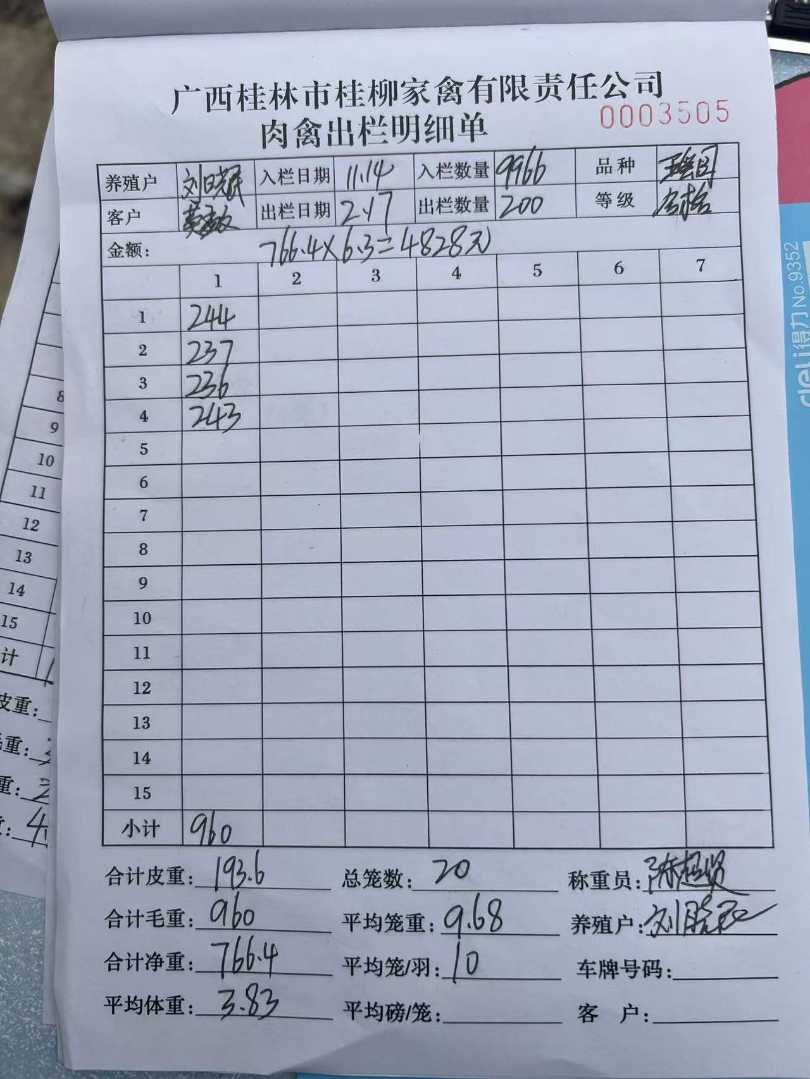 广西桂林市桂柳家禽有限责任公司
肉禽出栏明细单 0003505
养殖户 入栏日期 11.14 入栏数量 9966 品种
客户 出栏日期 2.17 出栏数量 200 等级
金额: 766.4×6.3=4828元
1 2 3 4 5 6 7
1 244
2 237
3 236
4 243
5
6
7
8
9
10
11
12
13
14
15
小计 960
合计皮重: 193.6 总笼数: 20 称重员: 陈超贤
合计毛重: 960 平均笼重: 9.68 养殖户:
合计净重: 766.4 平均笼/羽: 10 车牌号码:
平均体重: 3.83 平均磅/笼: 客 户:
8
9
10
11
12
13
14
15
计
皮重:
重:
重:
deli得力 No.9352